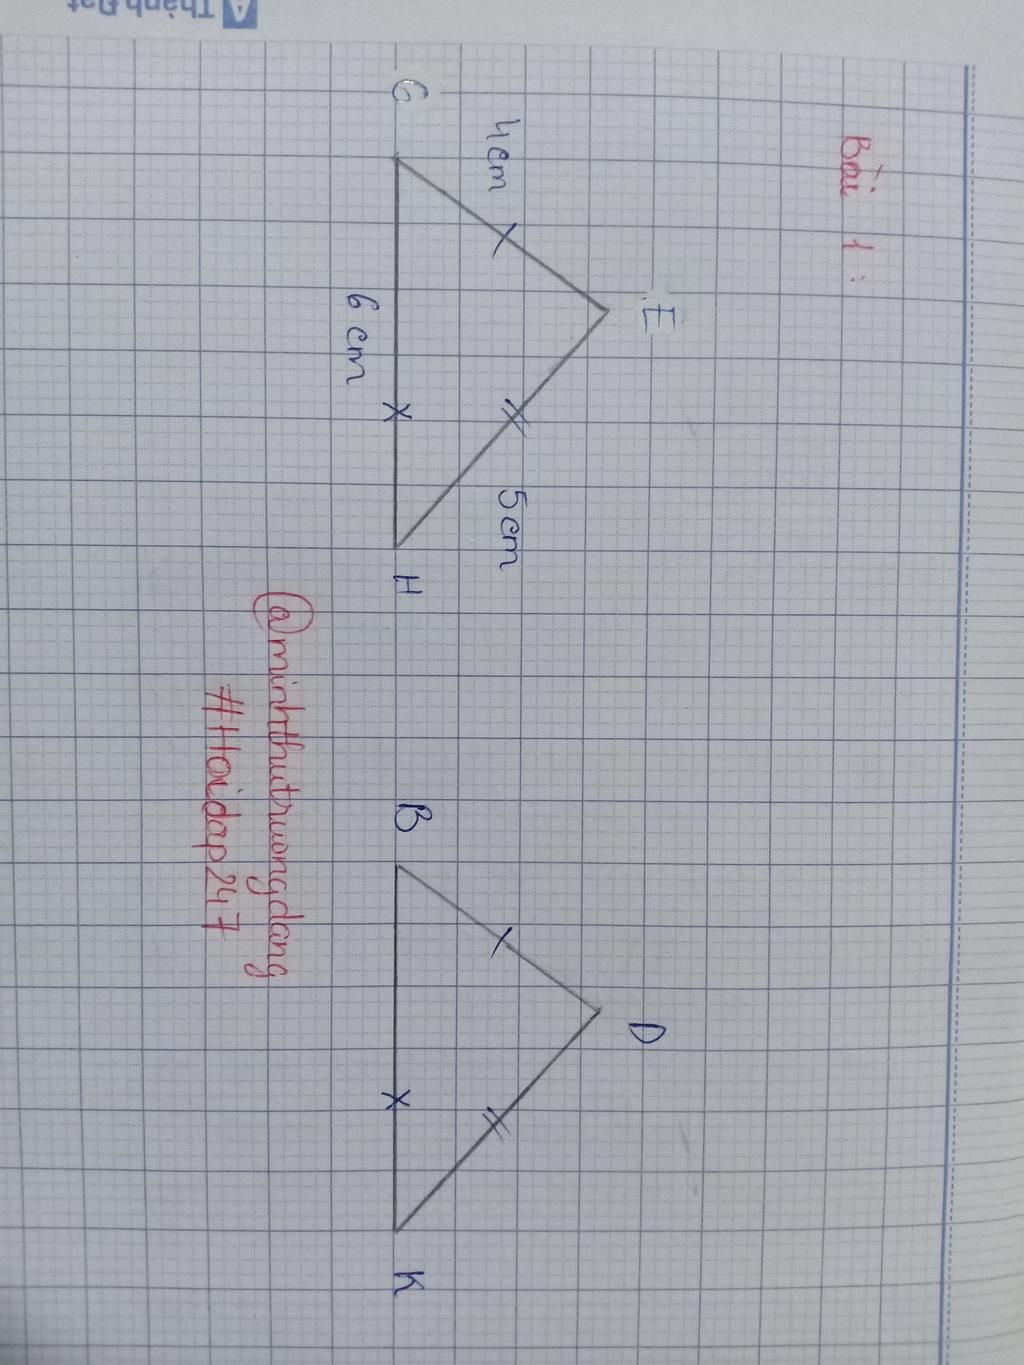 Thành Đạt
Bài 1:
E
4cm
5cm
G
H
6cm
D
B
K
@minhthutruongdang
#Hoidap247